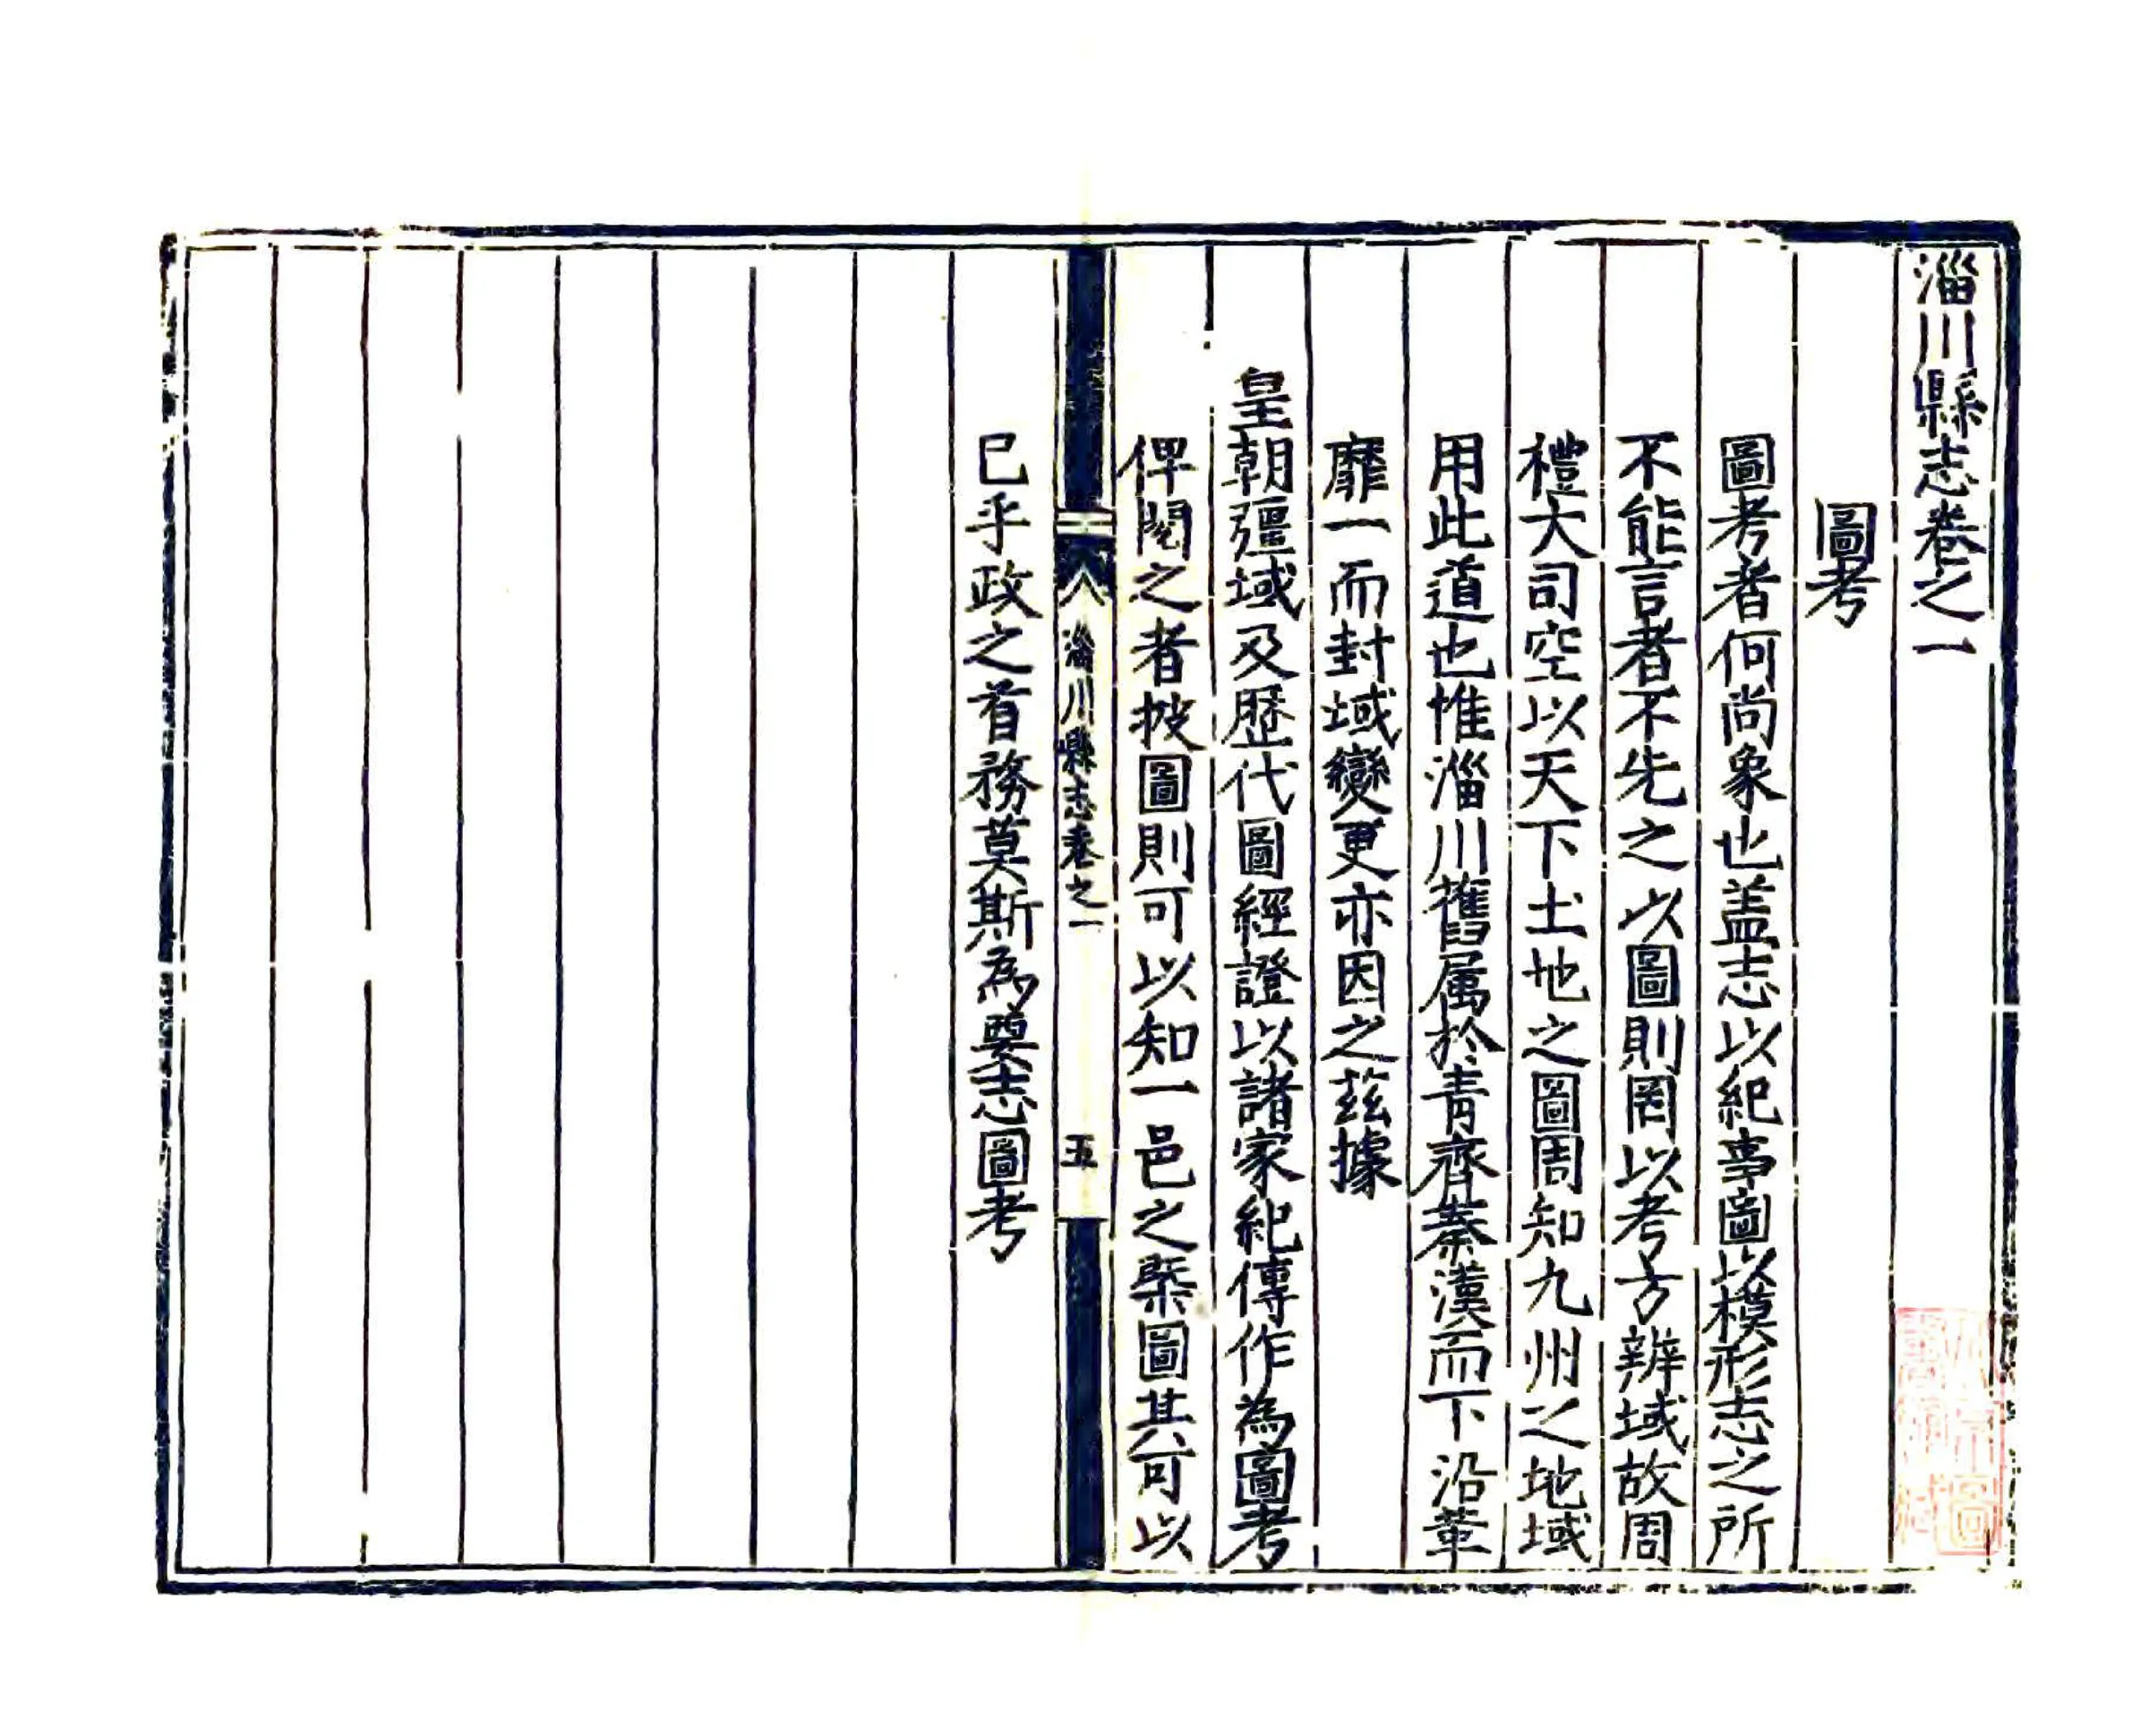 淄川縣志卷之一
圖考
圖考者何尚象也盖志以紀事圖以模形志之所
不能言者不先之以圖則罔以考方辨域故周
禮大司空以天下土地之圖周知九州之地域
用此道也惟淄川舊属於青齊秦漢而下沿革
靡一而封域變更亦因之茲據
皇朝疆域及歴代圖經證以諸家紀傳作為圖考
俾閱之者披圖則可以知一邑之槩圖其可以
淄川縣志卷之一
五
已乎政之首務莫斯為要志圖考